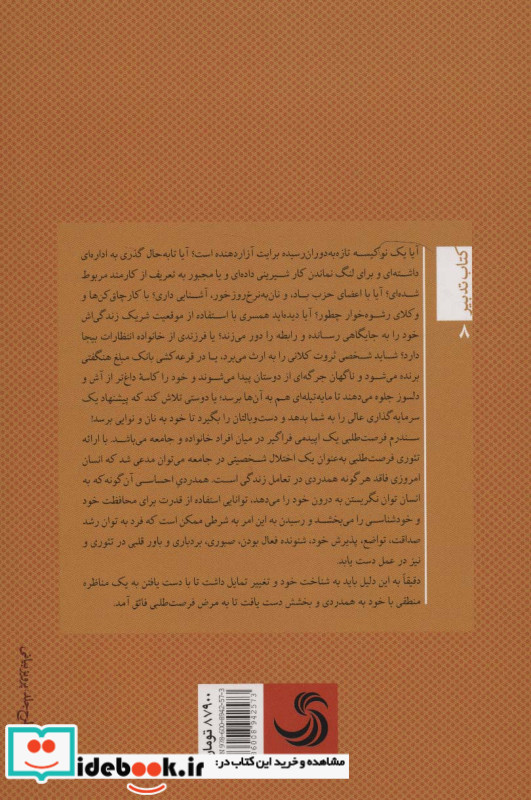 کتاب تدبیر
۸
آیا یک نوکیسه تازه‌به‌دوران‌رسیده برایت آزاردهنده است؟ آیا تابه‌حال گذری به اداره‌ای
داشته‌ای و برای لنگ نماندن کار شیرینی داده‌ای و یا مجبور به تعریف از کارمند مربوط
شده‌ای؟ آیا با اعضای حزب باد، و نان‌به‌نرخ‌روزخور، آشنایی داری؟ با کارچاق‌کن‌ها و
وکلای رشوه‌خوار چطور؟ آیا دیده‌اید همسری با استفاده از موقعیت شریک زندگی‌اش
خود را به جایگاهی رسانده و رابطه را دور می‌زند؟ یا فرزندی از خانواده انتظارات بیجا
دارد؟ شاید شخصی ثروت کلانی را به ارث می‌برد، یا در قرعه‌کشی بانک مبلغ هنگفتی
برنده می‌شود و ناگهان جرگه‌ای از دوستان پیدا می‌شوند و خود را کاسهٔ داغ‌تر از آش و
دلسوز جلوه می‌دهند تا مایه‌تیله‌ای هم به آن‌ها برسد؛ یا دوستی تلاش کند که پیشنهاد یک
سرمایه‌گذاری عالی را به شما بدهد و دست‌وبالتان را بگیرد تا خود به نان و نوایی برسد!
سندرم فرصت‌طلبی یک اپیدمی فراگیر در میان افراد خانواده و جامعه می‌باشد. با ارائه
تئوری فرصت‌طلبی به‌عنوان یک اختلال شخصیتی در جامعه می‌توان مدعی شد که انسان
امروزی فاقد هرگونه همدردی در تعامل زندگی است. همدردی احساسی آن‌گونه که به
انسان توان نگریستن به درون خود را می‌دهد، توانایی استفاده از قدرت برای محافظت خود
و خودشناسی را می‌بخشد و رسیدن به این امر به شرطی ممکن است که فرد به توان رشد
صداقت، تواضع، پذیرش خود، شنونده فعال بودن، صبوری، بردباری و باور قلبی در تئوری و
نیز در عمل دست یابد.
دقیقاً به این دلیل باید به شناخت خود و تغییر تمایل داشت تا با دست یافتن به یک مناظره
منطقی با خود به همدردی و بخشش دست یافت تا به مرض فرصت‌طلبی فائق آمد.
۸۷۹۰۰ تومان
978-600-8942-57-3
مشاهده و خرید این کتاب در:
idebook.ir